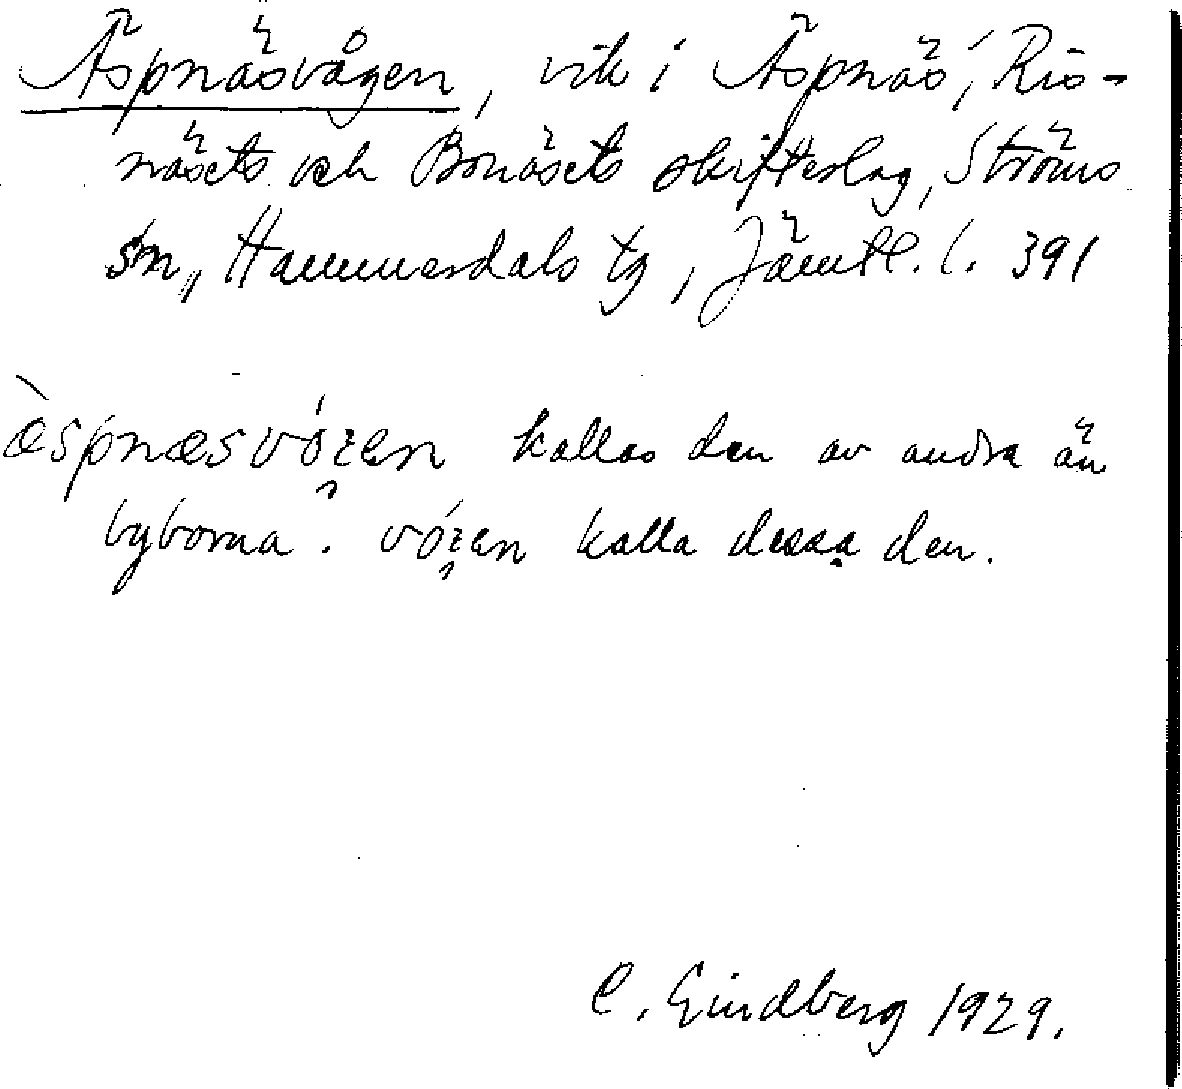 Äspnäsvågen, vik i Äspnäs, Ris-
näsets och Bonäsets skifteslag, Ströms
sn, Hammerdals tg, Jämtl. l. 391
æ̀spnæsvóɀen kallas den av andra än
byborna. vóɀen kalla dessa den.
C. Lindberg 1929.